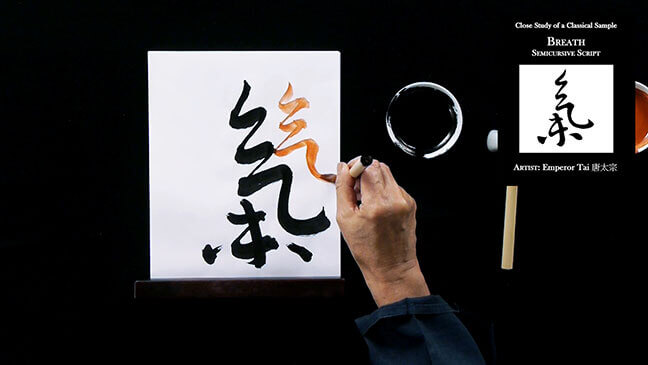 氣
Close Study of a Classical Sample
BREATH
SEMICURSIVE SCRIPT
氣
ARTIST: Emperor Tai 唐太宗